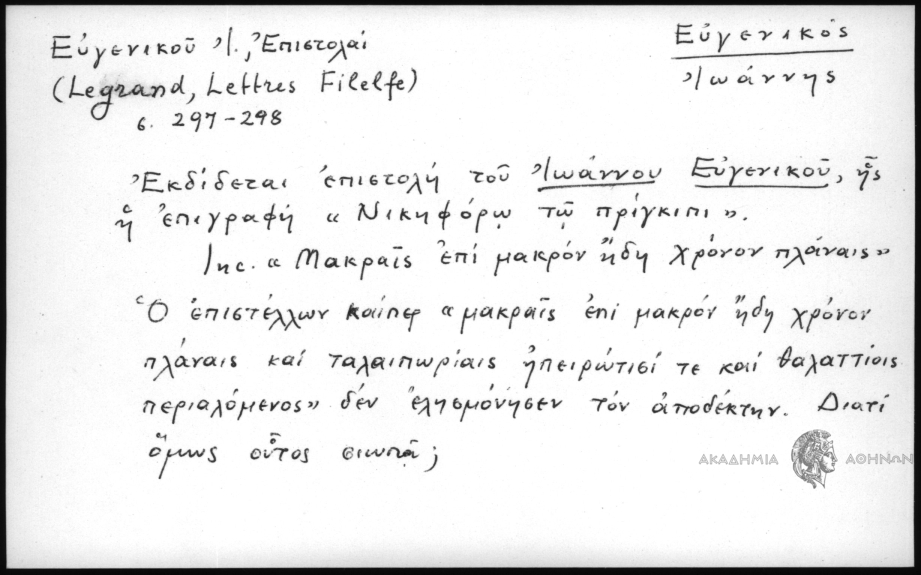 Εὐγενικοῦ Ἰ., Ἐπιστολαί
(Legrand, Lettres Filelfe)
σ. 297-298
Εὐγενικὸς
Ἰωάννης
Ἐκδίδεται ἐπιστολή τοῦ Ἰωάννου Εὐγενικοῦ, ἧς
ἡ ἐπιγραφή «Νικηφόρῳ τῷ πρίγκιπι».
Inc. «Μακραῖς ἐπί μακρόν ἤδη χρόνον πλάναις»
Ὁ ἐπιστέλλων καίπερ «μακραῖς ἐπί μακρόν ἤδη χρόνον
πλάναις καί ταλαιπωρίαις ἠπειρώτισί τε καί θαλαττίοις
περιαλόμενος» δέν ἐλησμόνησεν τόν ἀποδέκτην. Διατί
ὅμως οὗτος σιωπᾷ;
ΑΚΑΔΗΜΙΑ ΑΘΗΝΩΝ